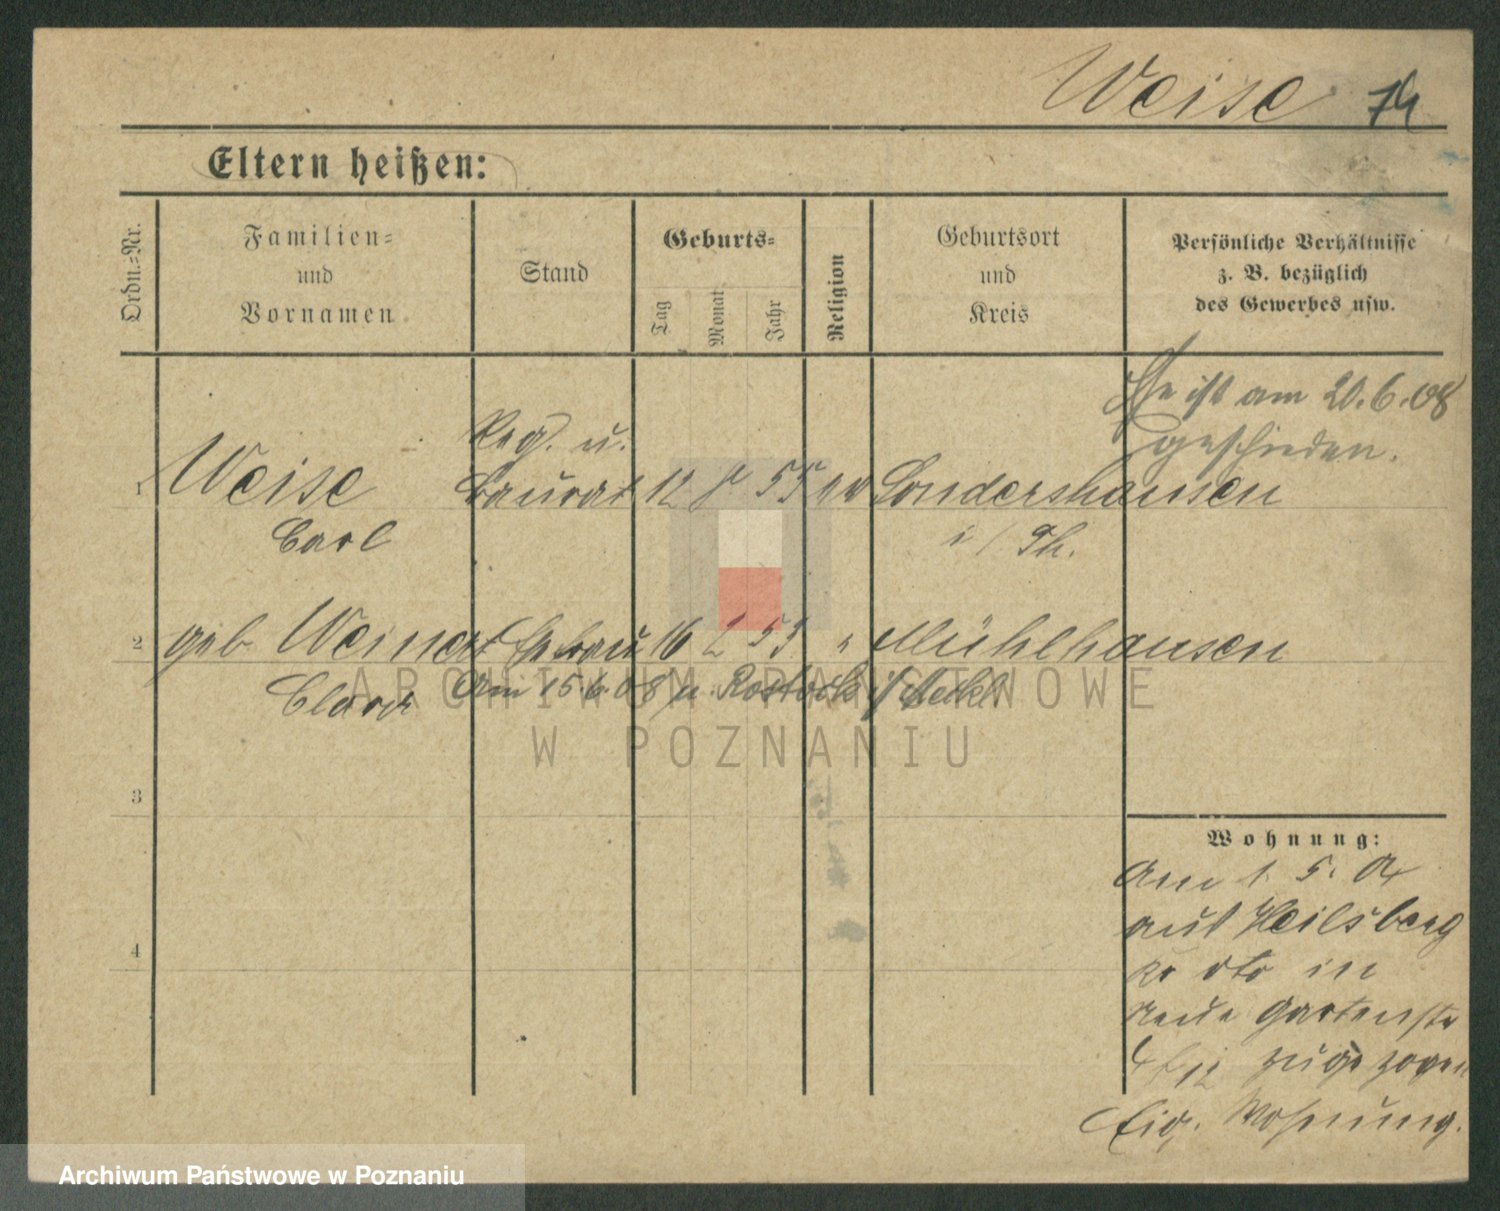 Weise
Eltern heißen:
Ordn.=Nr.
Familien=
und
Vornamen
Stand
Geburts=
Tag
Monat
Jahr
Religion
Geburtsort
und
Kreis
Persönliche Verhältnisse
z. B. bezüglich
des Gewerbes usw.
Ehe ist am 20.6.08
geschieden.
Reg. u.
1 Weise Baurat 12 55 Sondershausen
Carl i/Th.
2 geb Weinert Ehefrau 16 2 53 " Mühlhausen
Clara Am 15.6.08 n. Rostock i/Meckl.
3
Wohnung:
Am 1. 5. 04
aus Heilsberg
in
neue Gartenstr
zugezogen
4
Eig. Wohnung.
ARCHIWUM PAŃSTWOWE
W POZNANIU
Archiwum Państwowe w Poznaniu